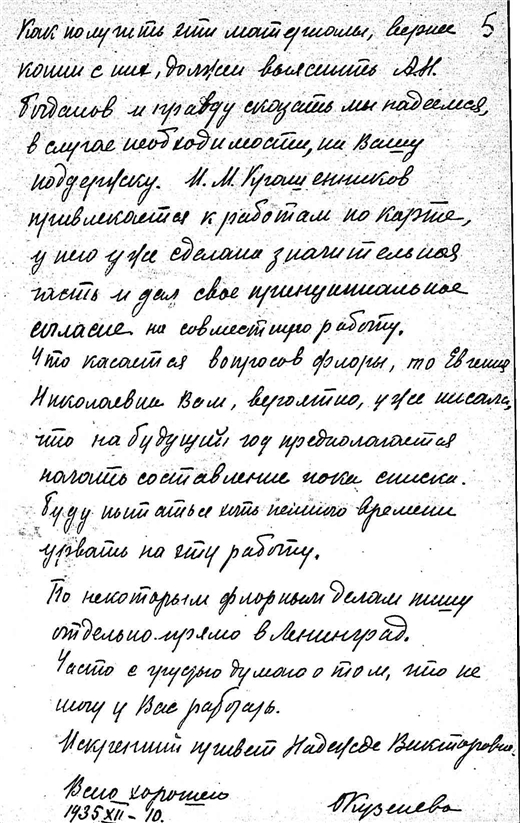 Как получить эти материалы, вернее 5
копии с них, должен выяснить А.Н.
Богданов и правду сказать мы надеемся,
в случае необходимости, на Вашу
поддержку. И. М. Крашенников
привлекается к работам по карте,
у него уже сделана значительная
часть и дал свое принципиальное
согласие на совместную работу.
Что касается вопросов флоры, то Евгения
Николаевна Вам, вероятно, уже писала,
что на будущий год предполагается
начать составление пока списка.
Буду пытаться хоть немного времени
урвать на эту работу.
По некоторым флорным делам пишу
отдельно прямо в Ленинград.
Часто с грустью думаю о том, что не
могу у Вас работать.
Искренний привет Надежде Викторовне.
Всего хорошего
1935 XII – 10. ОКузенева